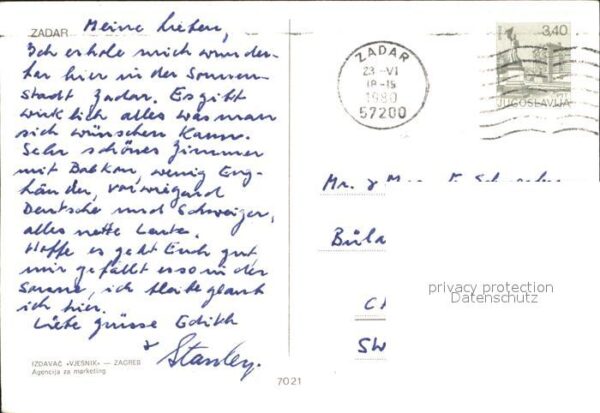 ZADAR
Meine Lieben,
Ich erhole mich wunder-
bar hier in der Sonnen-
stadt Zadar. Es gibt
wirklich alles was man
sich wünschen kann.
Sehr schönes Zimmer
mit Balkon, wenig Eng-
länder, vorwiegend
Deutsche und Schweizer,
alles nette Leute.
Hoffe es geht Euch gut,
mir gefällt es so in der
Sonne, ich bleibe glaub
ich hier.
Liebe Grüsse Edith
& Stanley.
IZDAVAČ »VJESNIK« — ZAGREB
Agencija za marketing
7021
ZADAR
23-VI
18-15
1980
57200
3,40
JUGOSLAVIJA
Mr. & Mrs. F.
Büla
CH
SW
privacy protection
Datenschutz